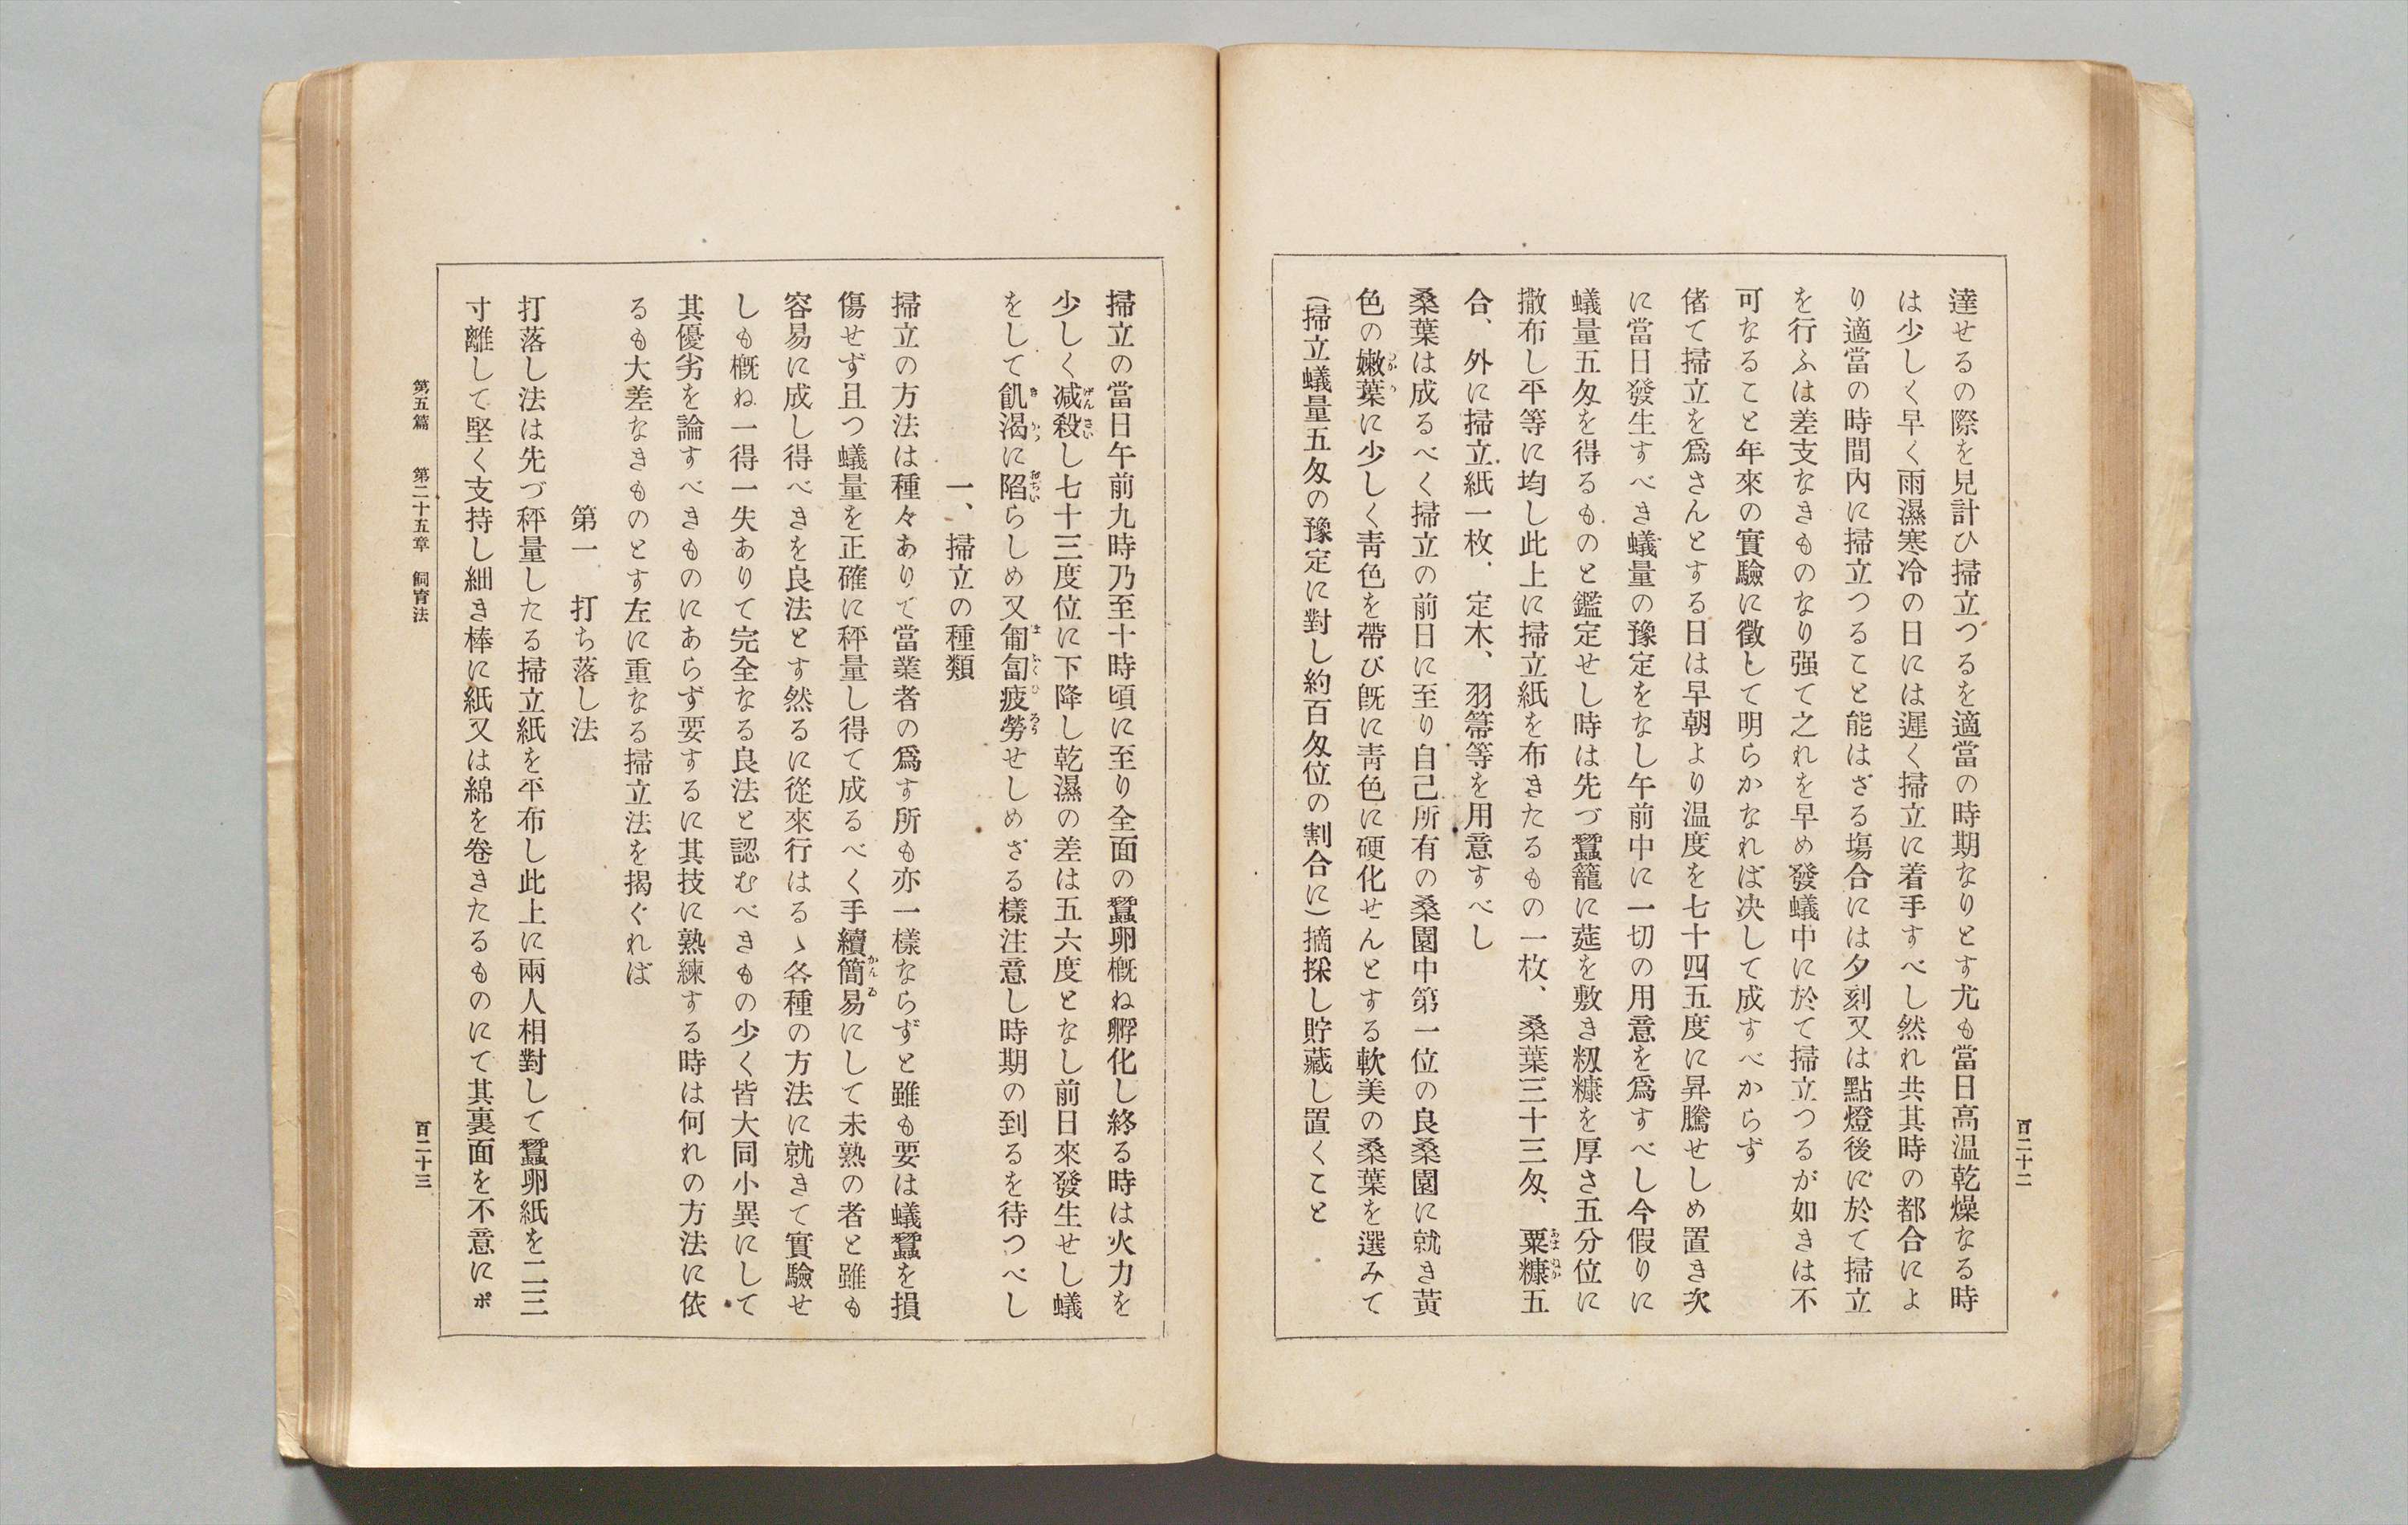 達せるの際を見計ひ掃立つるを適當の時期なりとす尤も當日高温乾燥なる時
は少しく早く雨濕寒冷の日には遲く掃立に着手すべし然れ共其時の都合によ
り適當の時間内に掃立つること能はざる塲合には夕刻又は點燈後に於て掃立
を行ふは差支なきものなり强て之れを早め發蟻中に於て掃立つるが如きは不
可なること年來の實驗に徵して明らかなれば决して成すべからず
偖て掃立を爲さんとする日は早朝より温度を七十四五度に昇騰せしめ置き次
に當日發生すべき蟻量の豫定をなし午前中に一切の用意を爲すべし今假りに
蟻量五匁を得るものと鑑定せし時は先づ蠶籠に莚を敷き籾糠を厚さ五分位に
撒布し平等に均し此上に掃立紙を布きたるもの一枚、桑葉三十三匁、粟糠五
合、外に掃立紙一枚、定木、羽箒等を用意すべし
桑葉は成るべく掃立の前日に至り自己所有の桑園中第一位の良桑園に就き黃
色の嫩葉に少しく靑色を帶び旣に靑色に硬化せんとする軟美の桑葉を選みて
(掃立蟻量五匁の豫定に對し約百匁位の割合に)摘採し貯藏し置くこと
百二十二
掃立の當日午前九時乃至十時頃に至り全面の蠶卵槪ね孵化し終る時は火力を
少しく减殺し七十三度位に下降し乾濕の差は五六度となし前日來發生せし蟻
をして飢渴に陷らしめ又匍匐疲勞せしめざる樣注意し時期の到るを待つべし
一、掃立の種類
掃立の方法は種々ありて當業者の爲す所も亦一樣ならずと雖も要は蟻蠶を損
傷せず且つ蟻量を正確に秤量し得て成るべく手續簡易にして未熟の者と雖も
容易に成し得べきを良法とす然るに從來行はるゝ各種の方法に就きて實驗せ
しも槪ね一得一失ありて完全なる良法と認むべきもの少く皆大同小異にして
其優劣を論すべきものにあらず要するに其技に熟練する時は何れの方法に依
るも大差なきものとす左に重なる掃立法を揭ぐれば
第一　打ち落し法
打落し法は先づ秤量したる掃立紙を平布し此上に兩人相對して蠶卵紙を二三
寸離して堅く支持し細き棒に紙又は綿を卷きたるものにて其裏面を不意にポ
第五篇　第二十五章　飼育法
百二十三